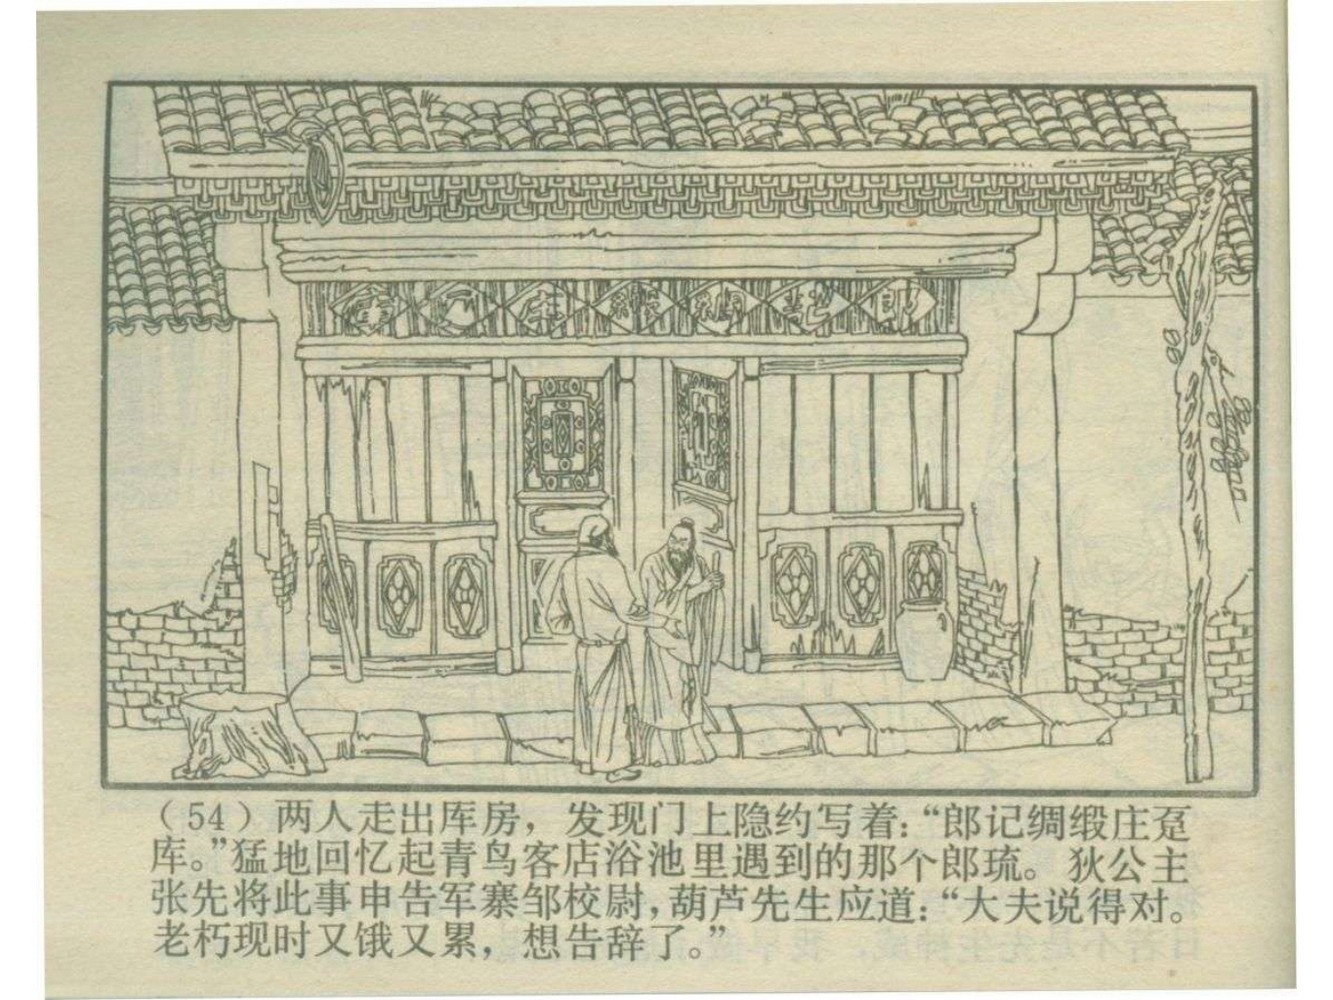 郎记绸缎庄
（54）两人走出库房，发现门上隐约写着：“郎记绸缎庄趸
库。”猛地回忆起青鸟客店浴池里遇到的那个郎琉。狄公主
张先将此事申告军寨邹校尉，葫芦先生应道：“大夫说得对。
老朽现时又饿又累，想告辞了。”